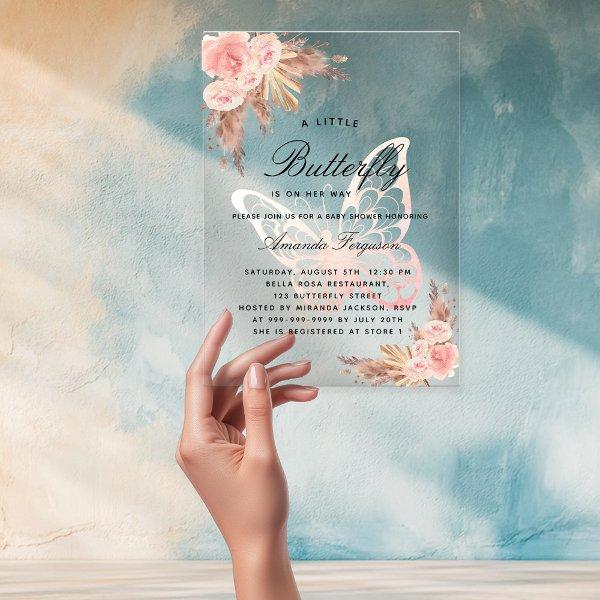 A LITTLE
Butterfly
IS ON HER WAY
PLEASE JOIN US FOR A BABY SHOWER HONORING
Amanda Ferguson
SATURDAY, AUGUST 5TH 12:30 PM
BELLA ROSA RESTAURANT,
123 BUTTERFLY STREET
HOSTED BY MIRANDA JACKSON, RSVP
AT 999-999-9999 BY JULY 20TH
SHE IS REGISTERED AT STORE 1